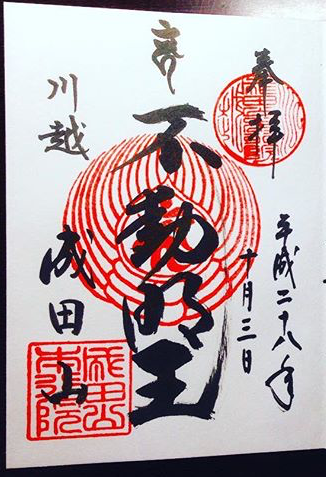 奉拝
平成二十八年
十月三日
不動明王
川越
成田山
成田山
本行院